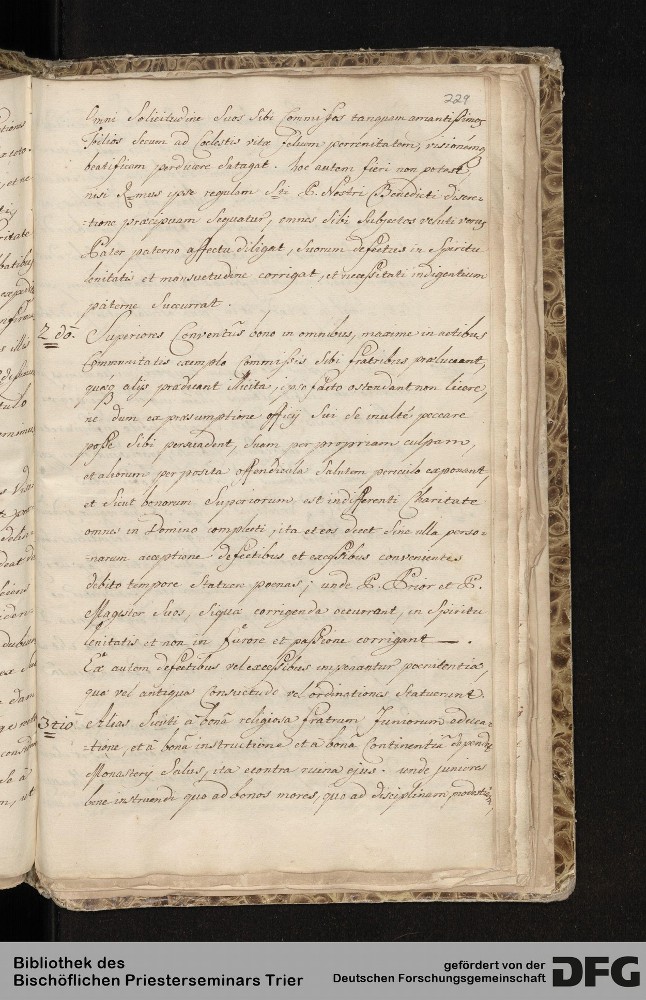 229
Omni Solicitudine Suos Sibi Commissos tanquam amantissimos
Filios Secum ad Coelestis vitae felicem perennitatem, visionemq
beatificam perducere Satagat. hoc autem fieri non potest,
nisi Rmus ipse regulam Sti P. Nostri Benedicti discre=
=tione praecipuam Sequatur, omnes Sibi Subjectos veluti verus
Pater paterno affectu diligat, Suorum defectus in Spiritu
lenitatis et mansuetudine corrigat, et necessitati indigentium
paterne Succurrat.
2dō. Superiores Conventûs bono in omnibus, maxime in actibus
Communitatis exemplo Commissis Sibi fratribus praeluceant,
quae alijs praedicant illicita, ipso facto ostendant non licere,
ne dum ex praesumptione officij Sui Se inultè peccare
posse Sibi persuadent, Suam per propriam culpam,
et aliorum per posita offendicula Salutem periculo exponant,
et Sicut bonorum Superiorum est indifferenti Charitate
omnes in Domino complecti, ita et eos decet Sine ulla perso=
=narum acceptione defectibus et excessibus convenientes
debito tempore Statuere poenas; unde P. Prior et P.
Magister Suos, Siquae corrigenda occurrant, in Spiritu
lenitatis et non in furore et passione corrigant —.
Ex autem defectibus vel excessibus imponantur poenitentiae,
quae vel antiqua Consuetudo vel ordinationes Statuerunt
3tiò Alias Sicuti à bonâ religiosa fratrum Juniorum educa=
=tione, et à bonâ instructione et à bonâ Continentiâ dependet
Monastery Salus, ita econtra ruina ejus. unde juniores
bene instruendi quo ad bonos mores, quo ad disciplinam
Bibliothek des
Bischöflichen Priesterseminars Trier
gefördert von der
Deutschen Forschungsgemeinschaft
DFG